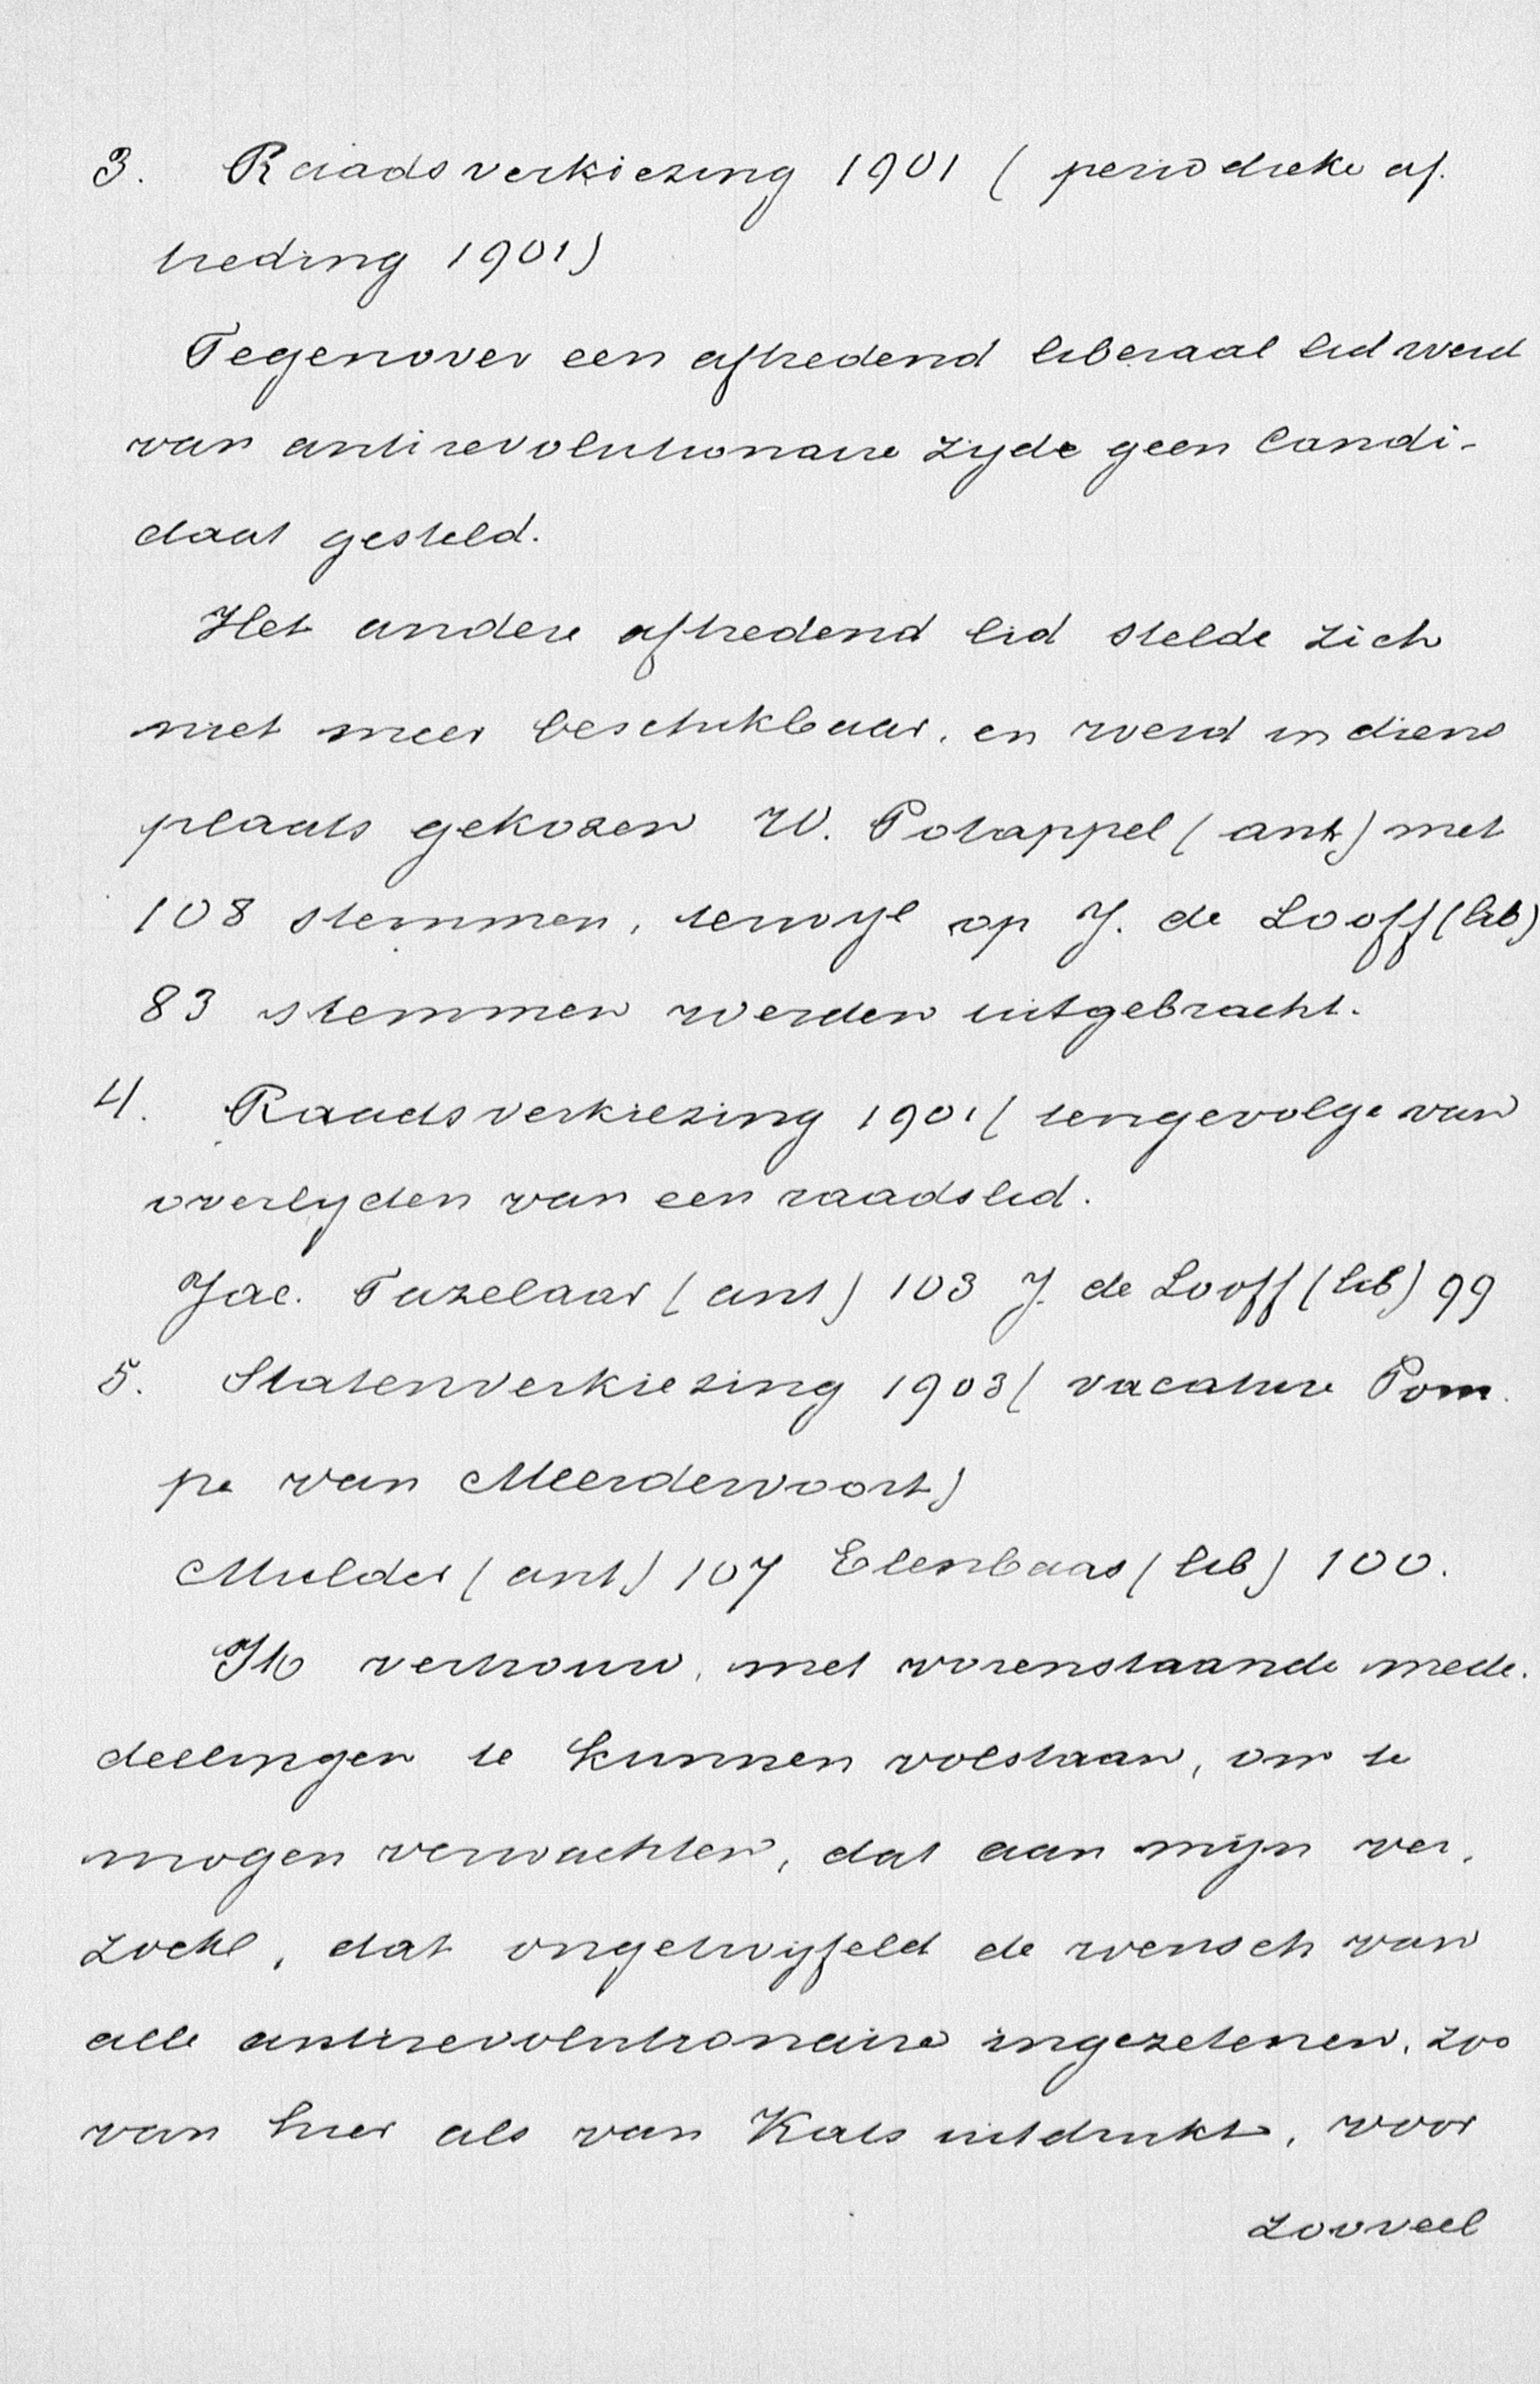 3. Raadsverkiezing 1901 ( periodieke af-
treding 1901)
Tegenover een aftredend liberaal lid werd
van antirevolutionaire zijde geen Candi-
daat gesteld.
Het andere aftredend lid stelde zich
niet meer beschikbaar, en werd in diens
plaats gekozen W. Potappel ( ant) met
108 stemmen, terwijl op J. de Looff (lib)
83 stemmen werden uitgebracht.
4. Raadsverkiezing 1901 ( tengevolge van
overlijden van een raadslid.
Jac. Tazelaar ( ant ) 103 J. de Looff (lib) 99
5. Statenverkiezing 1903 ( vacature Pom-
pe van Meerdervoort)
Mulder ( ant.) 107 Elenbaas ( lib ) 100.
Ik vertrouw, met vorenstaande mede-
deelingen te kunnen volstaan, om te
mogen verwachten, dat aan mijn ver-
zoek, dat ongetwijfeld de wensch van
alle antirevolutionaire ingezetenen, zoo
van hier als van Kats uitdrukt, voor
zooveel